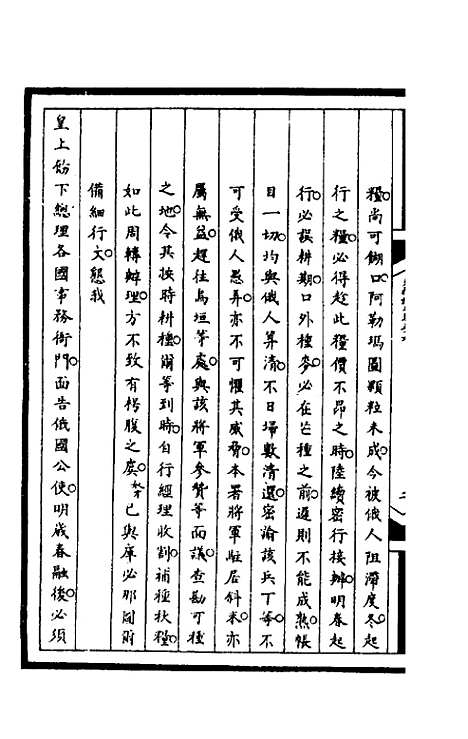 糧尚可餬口阿勒瑪圖顆粒未成今被俄人阻滯度冬起
行之糧必得趁此糧價不昂之時陸續密行接辦明春起
行必誤耕期口外種麥必在芒種之前遲則不能成熟帳
目一切均與俄人算清不日掃數清還密諭該兵丁等不
可受俄人愚弄亦不可懼其威脅本署將軍駐居斜米亦
屬無益趕往烏垣等處與該將軍參贊等面議查勘可種
之地令其挨時耕種爾等到時自行經理收割補種秋糧
如此周轉辦理方不致有枵腹之虞奴才已與庫必那爾爾
備細行文懇我
皇上飭下總理各國事務衙門面告俄國公使明歲春融後必須